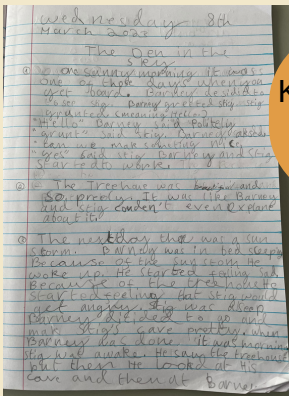 wednesday 8th
March 2023
The Den in the
sky
① One sunny morning it was
one of those days when you
get board. Barney desided to
see stig. Barney greeted stig. stig
grunted (meaning hello)
"Hello" Barney said Politely
"grunt" said stig. Barney asked
"can we make something nice
"yes" said stig Barney and Stig
started to work.
② The Treehouse was and
so preety. It was like Barney
and stig couden't even explane
about it.
③ The next day there was a sun
storm. Barney was in bed sleeping
Because of the sun storm He
woke up. He started falling sad.
Because of the treehouse He
started feeling that Stig would
get angry. Stig was asleep
Barney disided to go and
make Stig's cave pretty. when
Barney was done. it was morning
stig was awake. He say the treehouse
but then He looked at His
cave and then at Barney
K